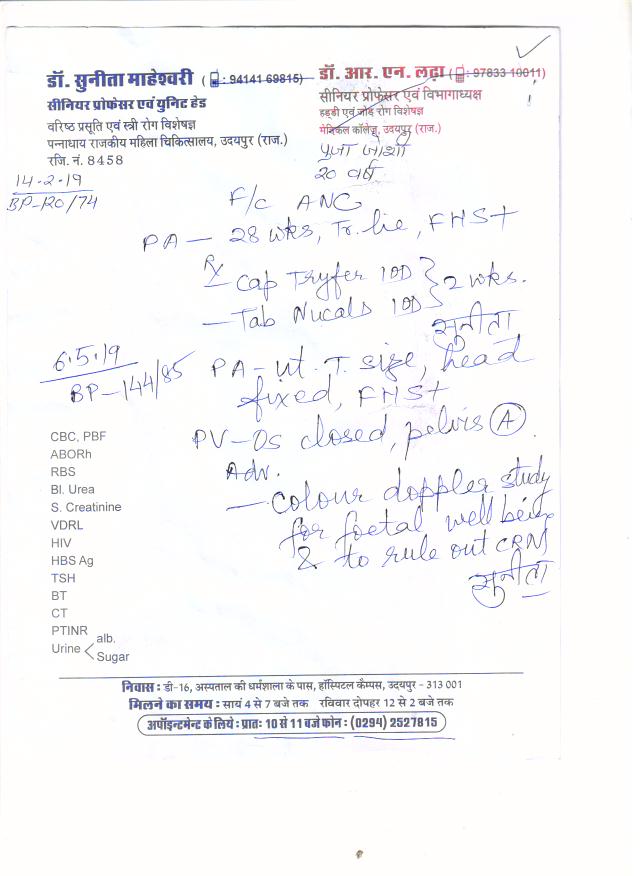 डॉ. सुनीता माहेश्वरी (: 94141 69815)
सीनियर प्रोफेसर एवं युनिट हेड
वरिष्ठ प्रसूति एवं स्त्री रोग विशेषज्ञ
पन्नाधाय राजकीय महिला चिकित्सालय, उदयपुर (राज.)
रजि. नं. 8458
डॉ. आर. एन. लढ़ा (: 97833 10011)
सीनियर प्रोफेसर एवं विभागाध्यक्ष
हड्डी एवं जोड़ रोग विशेषज्ञ
मेडिकल कॉलेज, उदयपुर (राज.)
पुजा जोशी
20 वर्ष
14-2-19
BP-120/74
F/c ANC
PA — 28 wks, Tr. lie, FHS+
Rx
— Cap Tryfer 1OD } 2 wks.
— Tab Nucals 1OD
सुनीता
6.5.19
BP-144/85
PA- ut. T. size, head
fixed, FHS+
PV-Os closed, pelvis (A).
Adv.
— Colour doppler study
for foetal well being
& to rule out CRN
सुनीता
CBC, PBF
ABORh
RBS
Bl. Urea
S. Creatinine
VDRL
HIV
HBS Ag
TSH
BT
CT
PTINR
Urine < alb.
Sugar
निवास : डी-16, अस्पताल की धर्मशाला के पास, हॉस्पिटल कैम्पस, उदयपुर - 313 001
मिलने का समय : सायं 4 से 7 बजे तक रविवार दोपहर 12 से 2 बजे तक
अपॉइन्टमेन्ट के लिये : प्रातः 10 से 11 बजे फोन : (0294) 2527815